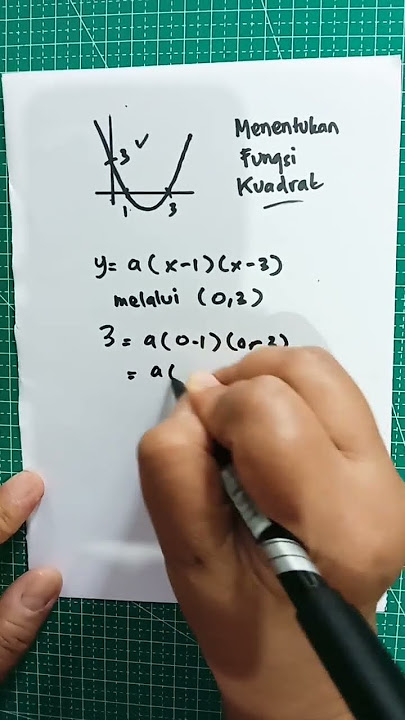 Menentukan
Fungsi
Kuadrat
3 ✓
1 3
y= a (x-1)(x-3)
melalui (0,3)
3 = a(0-1)(0-3)
= a(